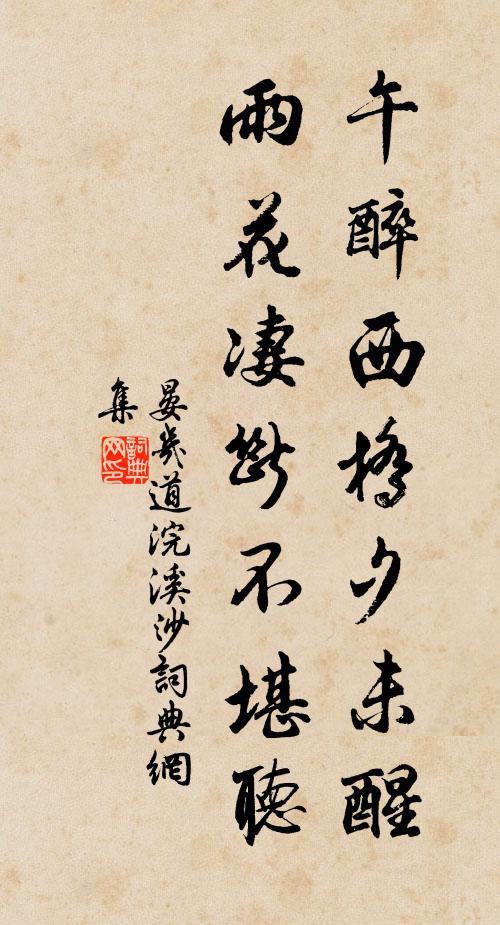 午醉西橋夕未醒
雨花凄斷不堪聽
晏幾道浣溪沙詞典網
集
詞典
网印